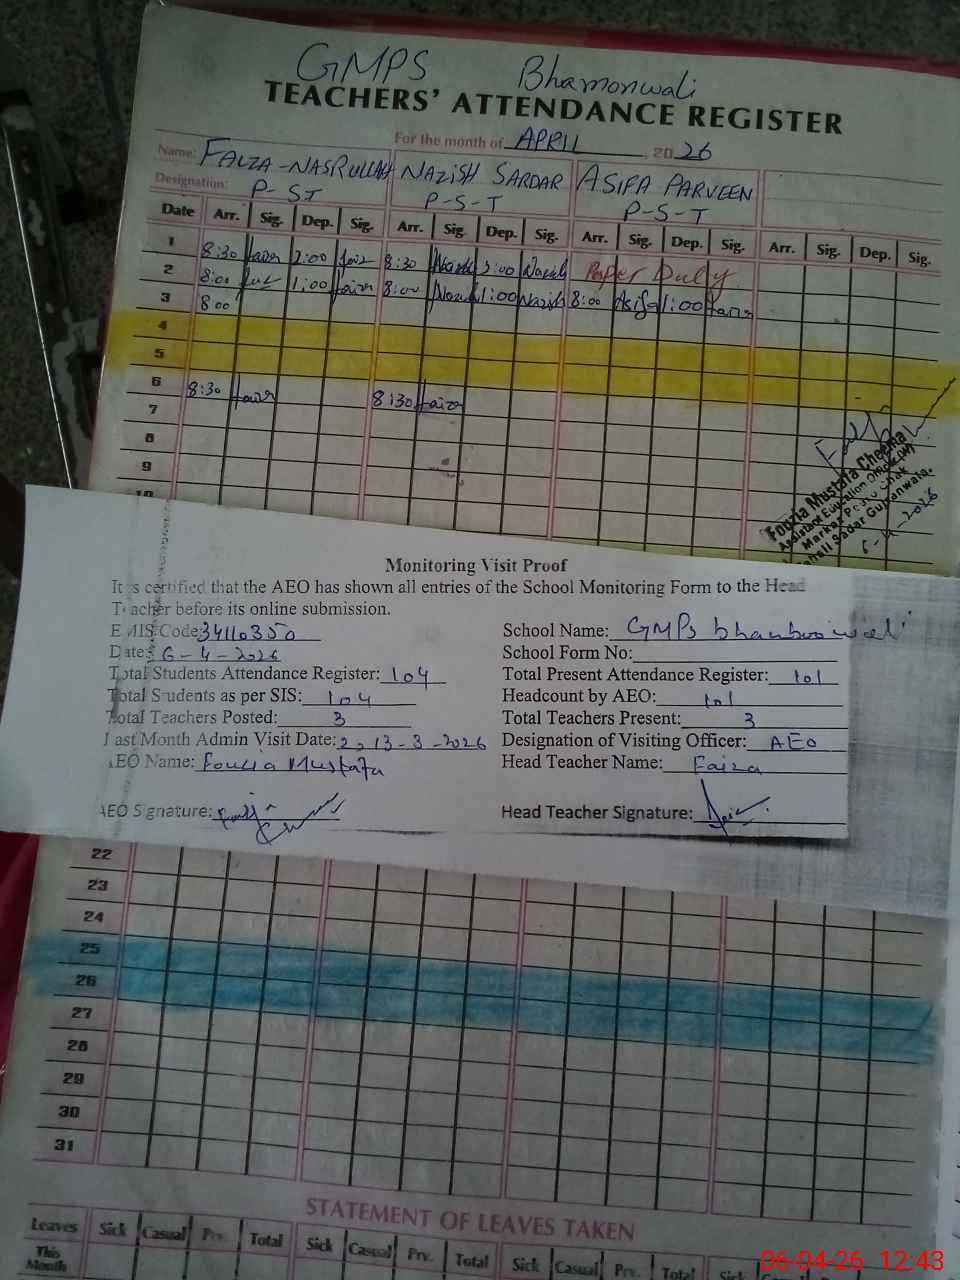 GMPS Bhamonwali
TEACHERS' ATTENDANCE REGISTER
For the month of APRIL, 2026
Name: FAIZA-NASRULLAH NAZISH SARDAR ASIFA PARVEEN
Designation: P-ST P-S-T P-S-T
Date Arr. Sig. Dep. Sig. Arr. Sig. Dep. Sig. Arr. Sig. Dep. Sig. Arr. Sig. Dep. Sig.
1 8:30 2:00 8:30 Paper Duty
2 8:00 1:00 8:00 1:00 Nazish 8:00 Asifa 1:00
3 8:00
4
5
6 8:30 faiza 8:30 faiza
7
8
9
10
Fouzia Mustafa Cheema
Assistant Education Officer (W)
Markaz
Sadar Gujranwala.
6-4-2026
Monitoring Visit Proof
It is certified that the AEO has shown all entries of the School Monitoring Form to the Head
Teacher before its online submission.
EMIS Code: 34110350 School Name: GMPS
Date: 6-4-2026 School Form No:
Total Students Attendance Register: 104 Total Present Attendance Register: 101
Total Students as per SIS: 104 Headcount by AEO: 101
Total Teachers Posted: 3 Total Teachers Present: 3
Last Month Admin Visit Date: 2, 13-3-2026 Designation of Visiting Officer: AEO
AEO Name: Fouzia Mustafa Head Teacher Name: Faiza
AEO Signature: Head Teacher Signature:
22
23
24
25
26
27
28
29
30
31
STATEMENT OF LEAVES TAKEN
Leaves Sick Casual Prv. Total Sick Casual Prv. Total Sick Casual Prv. Total Sick
This
Month
06-04-26 12:43